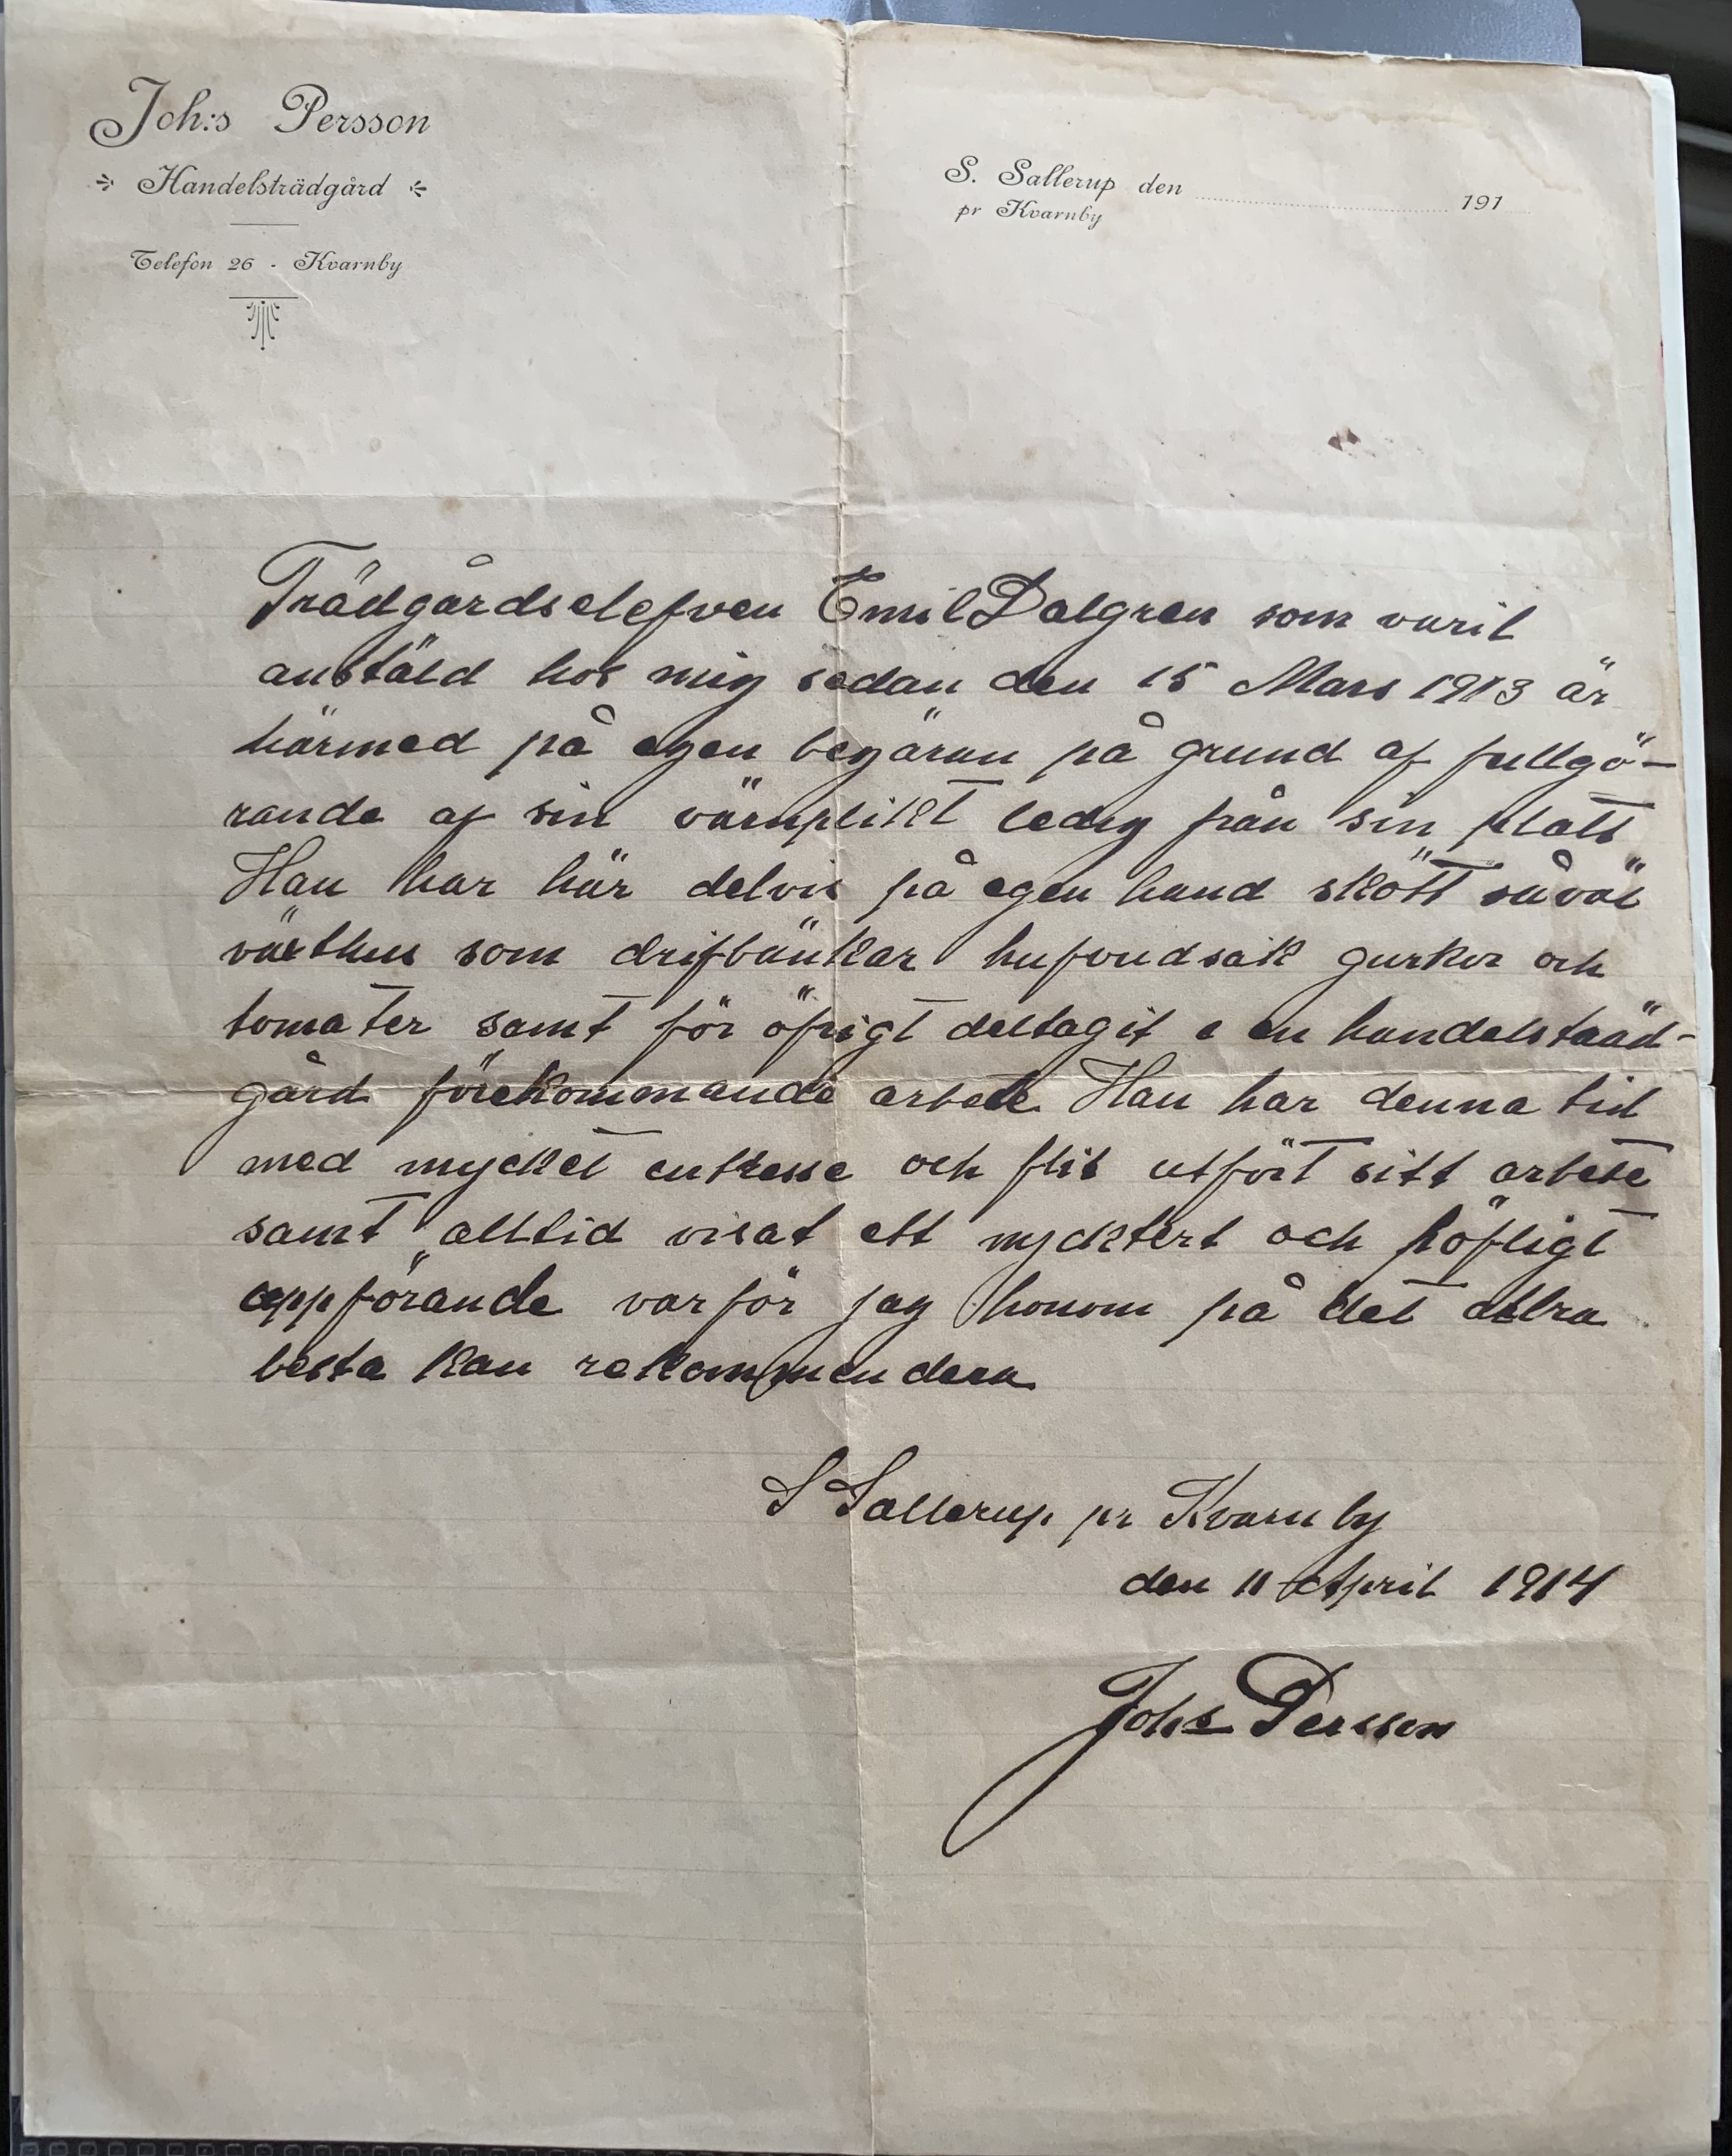 Joh:s Persson
Handelsträdgård
Telefon 26 - Kvarnby
S. Sallerup den 191
pr Kvarnby
Trädgårdselefven Emil Dalgren som varit
anstäld hos mig sedan den 15 Mars 1913 är
härmed på egen begäran på grund af fullgö-
rande af sin värnplikt ledig från sin plats
Han har här delvis på egen hand skött såväl
växthus som drifbänkar hufvudsak gurkor och
tomater samt för öfrigt deltagit i en handelsträd-
gård förekommande arbete. Han har denna tid
med mycket intresse och flit utfört sitt arbete
samt alltid visat ett nycktert och höfligt
uppförande varför jag honom på det allra
besta kan rekommendera
S Sallerup pr Kvarnby
den 11 April 1914
Johs Persson